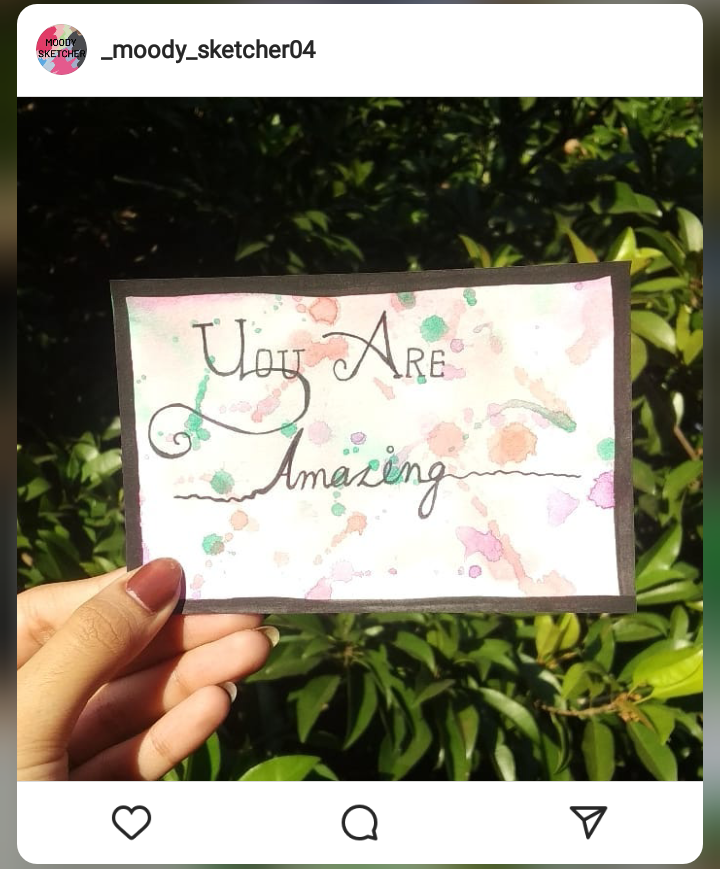 MOODY
SKETCHER
_moody_sketcher04
You Are
Amazing